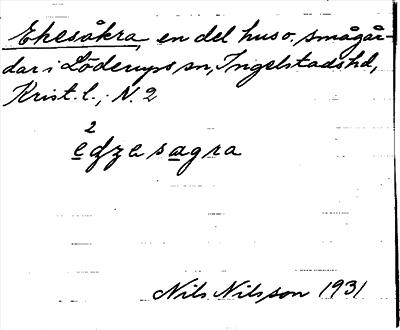 Ehesåkra, en del hus o. smågår-
dar i Löderups sn, Ingelstads hd,
Krist. l., N. 2
2
Nils Nilsson 1931